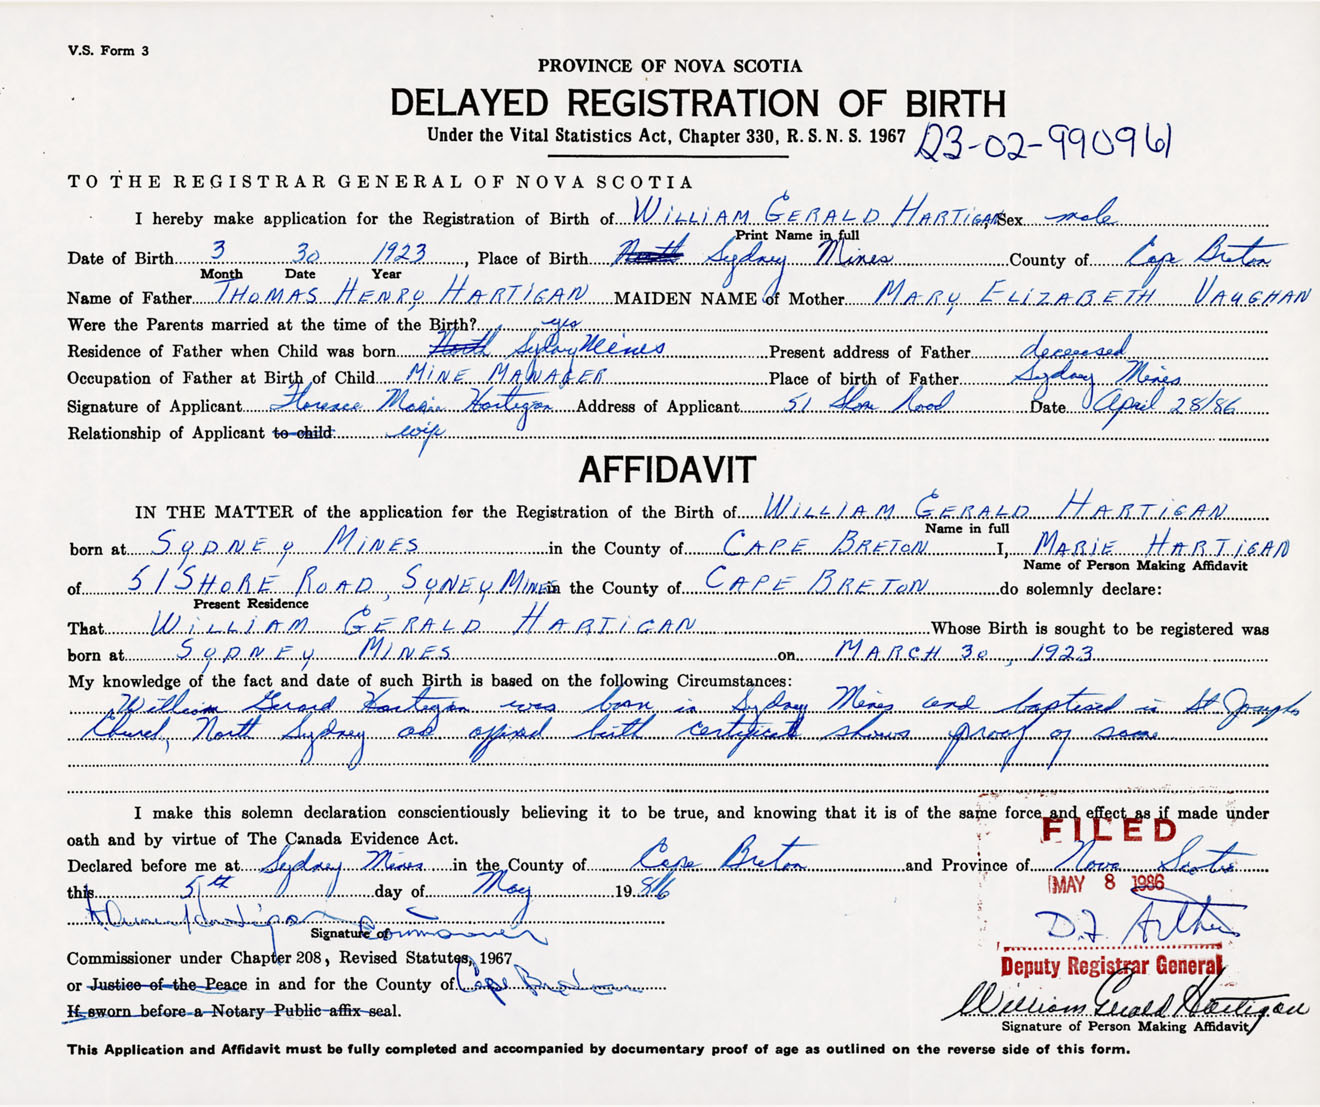 V.S. Form 3
PROVINCE OF NOVA SCOTIA
DELAYED REGISTRATION OF BIRTH
Under the Vital Statistics Act, Chapter 330, R. S. N. S. 1967 23-02-990961
TO THE REGISTRAR GENERAL OF NOVA SCOTIA
I hereby make application for the Registration of Birth of WILLIAM GERALD HARTIGAN Sex male
Print Name in full
Date of Birth 3 30 1923, Place of Birth North Sydney Mines County of Cape Breton
Month Date Year
Name of Father THOMAS HENRY HARTIGAN MAIDEN NAME of Mother MARY ELIZABETH VAUGHAN
Were the Parents married at the time of the Birth? yes
Residence of Father when Child was born North Sydney Mines Present address of Father deceased
Occupation of Father at Birth of Child MINE MANAGER Place of birth of Father Sydney Mines
Signature of Applicant Florence Marie Hartigan Address of Applicant 51 Shore Road Date April 28/86
Relationship of Applicant to child wife
AFFIDAVIT
IN THE MATTER of the application for the Registration of the Birth of WILLIAM GERALD HARTIGAN
Name in full
born at SYDNEY MINES in the County of CAPE BRETON I, MARIE HARTIGAN
Name of Person Making Affidavit
of 51 SHORE ROAD, SYNEY MINES in the County of CAPE BRETON do solemnly declare:
Present Residence
That WILLIAM GERALD HARTIGAN Whose Birth is sought to be registered was
born at SYDNEY MINES on MARCH 30, 1923
My knowledge of the fact and date of such Birth is based on the following Circumstances:
William Gerard Hartigan was born in Sydney Mines and baptised in St. Josephs
Church, North Sydney as birth certificate shows proof of same
I make this solemn declaration conscientiously believing it to be true, and knowing that it is of the same force and effect as if made under
oath and by virtue of The Canada Evidence Act.
FILED
Declared before me at Sydney Mines in the County of Cape Breton and Province of Nova Scotia
this 5th day of May 1986
MAY 8 1986
Signature of
D.F. Arthur
Commissioner under Chapter 208, Revised Statutes, 1967
Deputy Registrar General
or Justice of the Peace in and for the County of Cape Breton
William Gerald Hartigan
If sworn before a Notary Public affix seal.
Signature of Person Making Affidavit
This Application and Affidavit must be fully completed and accompanied by documentary proof of age as outlined on the reverse side of this form.